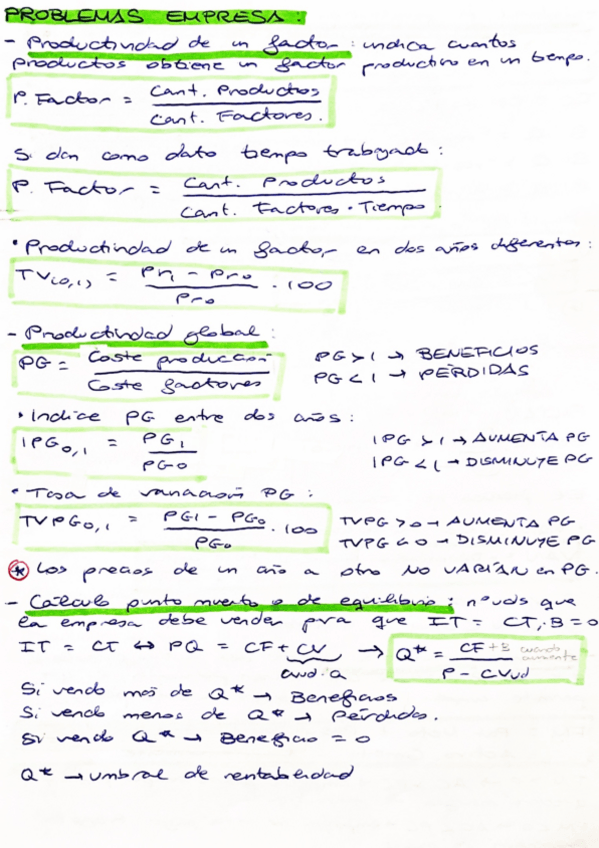 PROBLEMAS EMPRESA:
- Productividad de un factor: indica cuantos
productos obtiene un factor productivo en un tiempo.
P. Factor = Cant. Productos / Cant. Factores.
Si dan como dato tiempo trabajado:
P. Factor = Cant. Productos / Cant. Factores · Tiempo
• Productividad de un factor en dos años diferentes:
TV(0,1) = Pr1 - Pr0 / Pr0 · 100
- Productividad global:
PG = Coste producción / Coste factores
PG > 1 → BENEFICIOS
PG < 1 → PÉRDIDAS
• Indice PG entre dos años:
IPG0,1 = PG1 / PG0
IPG > 1 → AUMENTA PG
IPG < 1 → DISMINUYE PG
• Tasa de variación PG:
TVPG0,1 = PG1 - PG0 / PG0 · 100
TVPG > 0 → AUMENTA PG
TVPG < 0 → DISMINUYE PG
* Los precios de un año a otro NO VARÍAN en PG.
- Cálculo punto muerto o de equilibrio: nº uds que
la empresa debe vender para que IT = CT, B = 0
IT = CT ↔ PQ = CF + CV → Q* = CF + B / P - CVud
CVud · Q
Si vendo más de Q* → Beneficios
Si vendo menos de Q* → Pérdidas.
Si vendo Q* → Beneficio = 0
Q* → umbral de rentabilidad